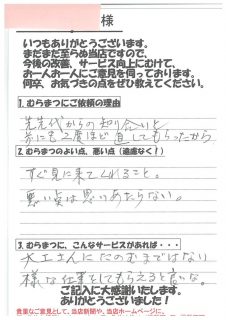 様
いつもありがとうございます。
まだまだ至らぬ当店ですので、
今後の改善、サービス向上にむけて、
お一人お一人にご意見を伺っております。
何卒、お気づきの点をぜひ教えてください。
1.むらまつにご依頼の理由
先先代からの知り合いと
外にも2度ほど直してもらったから
2.むらまつのよい点、悪い点（遠慮なく！）
すぐ見に来てくれること。
悪い点は思いあたらない。
3.むらまつに、こんなサービスがあれば・・・
大工さんにたのむまではない
様な仕事をしてもらえると良いな。
ご記入に大感謝いたします。
ありがとうございました！
貴重なご意見として、当店新聞や、当店ホームページに、